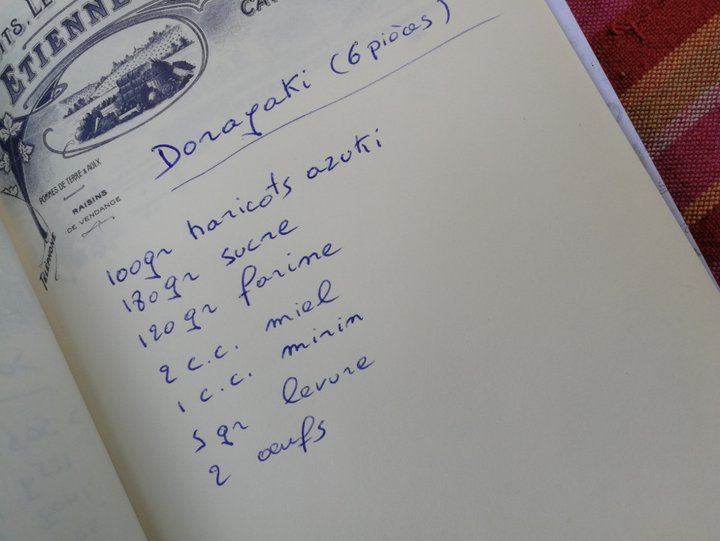 ITS, LE
ETIENNE
CA
POMMES DE TERRE & AULX
RAISINS
DE VENDANGE
Téléphone
Dorayaki (6 pièces)
100gr haricots azuki
180gr sucre
120gr farine
2 c.c. miel
1 c.c. mirin
5 gr levure
2 oeufs